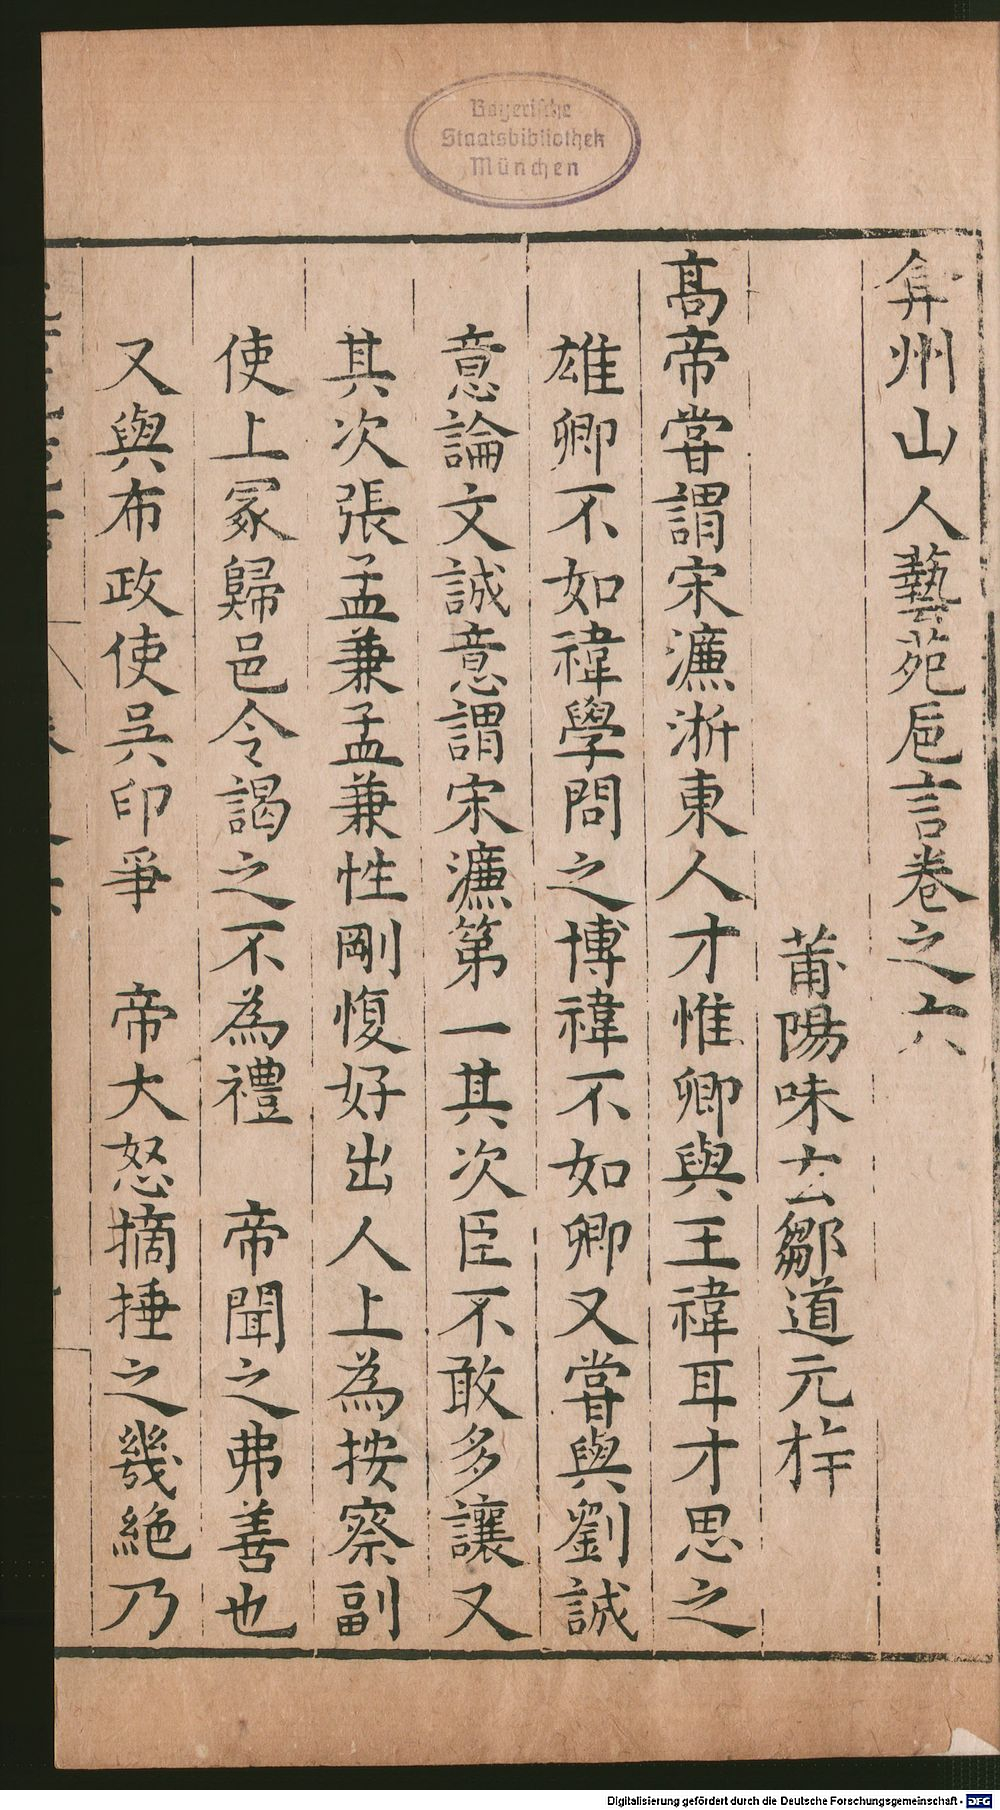 Bayerische
Staatsbibliothek
München
弇州山人藝苑巵言卷之六
莆陽味玄鄒道元梓
高帝甞謂宋濂浙東人才惟卿與王禕耳才思之
雄卿不如禕學問之博禕不如卿又甞與劉誠
意論文誠意謂宋濂第一其次臣不敢多讓又
其次張孟兼孟兼性剛愎好出人上為按察副
使上冢歸邑令謁之不為禮 帝聞之弗善也
又與布政使吳印爭 帝大怒摘捶之幾絶乃
Digitalisierung gefördert durch die Deutsche Forschungsgemeinschaft - DFG